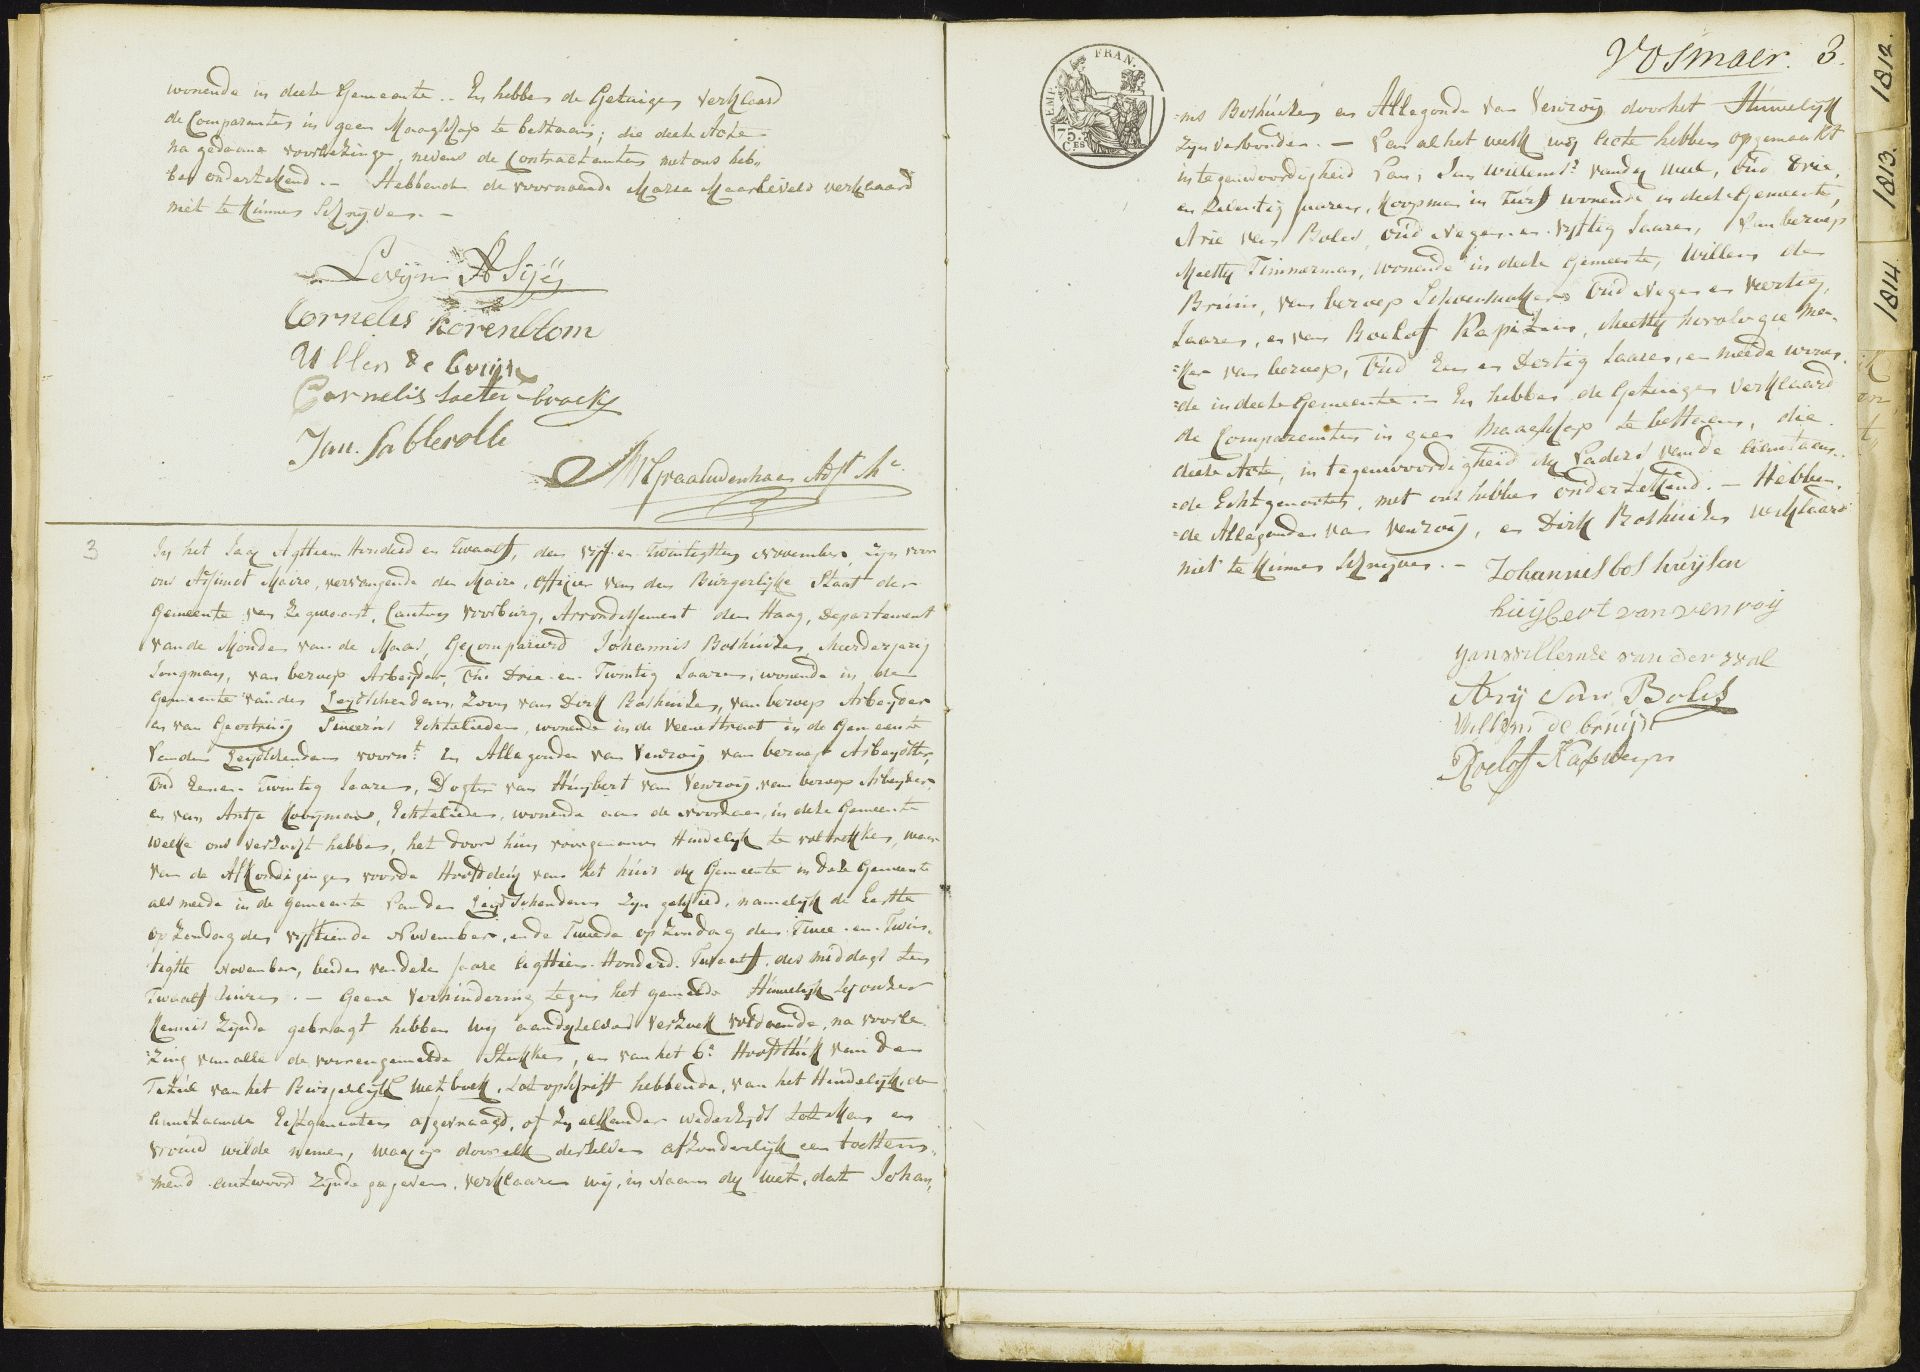 wonende in deese Gemeente .. En hebben de Getuigen verklaard
de Comparanten in geen Maagschap te bestaan; die deese Acte
na gedaane voorleezinge, nevens de Contractanten met ons heb-
ben onderteekend. – Hebbende de voornoemde Maria Maarleveld verklaard
niet te kunnen schryven. –
Cornelis Korenblom
Willem de bruijn
Cornelis Soetenbroek
Jan
Adjt Me
3
In het Jaar Agttien Honderd en Twaalf, den vyf en Twintigsten November, zyn voor
ons Adjunct Maire, vervangende den Maire, Officier van den Burgerlyke Staat der
Gemeente van Zegwaart, Canton Voorburg, Arrondissement den Haag, Departement
van de Monden van de Maas, Gecompareerd Johannis Boshuizen, Meerderjarig
Jongman, van beroep Arbeyder, Oud Drie en Twintig Jaaren, wonende in de
Gemeente van den Leydschendam, Zoon van Dirk Boshuizen, van beroep Arbeyder
en van Geertruy Echtelieden, wonende in de Veenestraat in de Gemeente
van den Leydschendam voornt. En Allegonda van Venrooy van beroep Arbeydster,
Oud Een en Twintig Jaaren, Dogter van Huybert van Venrooy, van beroep Arbeyder
en van Antje Kooyman, Echtelieden, wonende aan de Noordaa, in deze Gemeente
welke ons verzogt hebben, het door hun voorgenomen Huwelyk te voltrekken, waar
van de Afkondigingen voor de Hoofddeur van het huis der Gemeente in deze Gemeente
als meede in de Gemeente van den Leydschendam zyn geschied, namelyk de Eerste
op Zondag den vyftiende November, en de Tweede op Zondag den Twee en Twin-
tigste November, beiden van deze Jaare Agttien Honderd Twaalf, des middags ten
Twaalf Uuren. – Geene verhindering tegen het gemelde Huwelyk ter onzer
kennis zynde gebragt hebben wy aan derzelver verzoek voldoende, na voorle-
zing van alle de voorengemelde Stukken, en van het 6e Hoofdstuk van den
Titul van het Burgerlyk Wetboek, tot opschrift hebbende, van het Huwelyk, de
aanstaande Echtgenooten afgevraagd, of zy elkander wederzyds tot Man en
vrouw wilde nemen, waarop door elk derzelven afzonderlyk een toestem-
mend antwoord zynde gegeven, verklaaren wy, in Naam der Wet, dat Johan-
EMP. FRAN.
75.
C.ES
Vosmaer. 3.
=nis Boshuizen en Allegonda van Venrooy door het Huwelyk
zyn verbonden. – Van al het welk wy Acte hebben opgemaakt
in tegenwoordigheid van, Jan Willemse van der Wal, Oud Drie
en Zeventig Jaaren, Koopman in Turf wonende in deese Gemeente,
Arie van Boles, Oud Negen en Vyftig Jaaren, van beroep
Meester Timmerman, wonende in deese Gemeente, Willem de
Bruin, van beroep Schoenmaker Oud Negen en Veertig
Jaaren, en van Roelof Kapitein, Meester horologie ma-
=ker van beroep, Oud Een en Dertig Jaaren, en meede wonen-
=de in deese Gemeente. – En hebben de Getuigen verklaard
de Comparanten in geen Maagschap te bestaan, die
deese Acte, in tegenwoordigheid der Vaders van de aanstaan-
=de Echtgenooten, met ons hebben onderteekend. – Hebben-
=de Allegonda van Venrooy, en Dirk Boshuizen verklaard
niet te kunnen schryven. – Johannis bos huijsen
huijbert van venroij
jan willemse van der wal
Arij van Boles
Willem de bruijn
Roelof Kapiteyn
1812.
1813.
1814